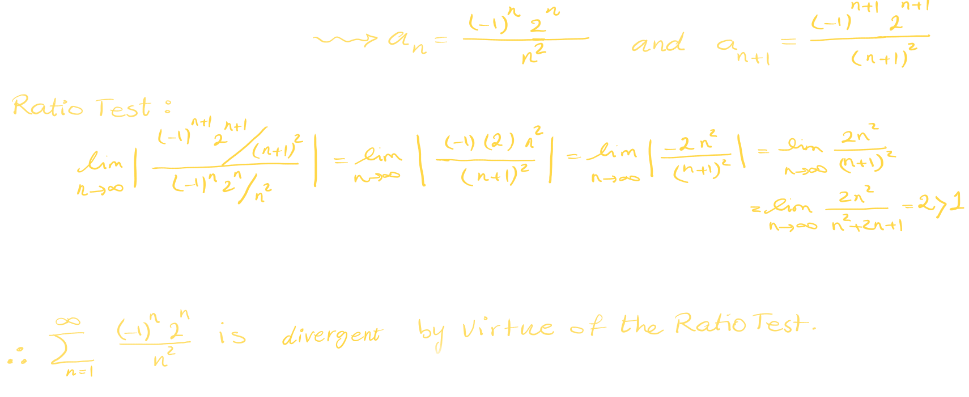 ⇝ aₙ = (-1)ⁿ 2ⁿ / n² and aₙ₊₁ = (-1)ⁿ⁺¹ 2ⁿ⁺¹ / (n+1)²
Ratio Test :
lim n→∞ | ((-1)ⁿ⁺¹ 2ⁿ⁺¹/(n+1)²) / ((-1)ⁿ 2ⁿ/n²) | = lim n→∞ | (-1)(2) n² / (n+1)² | = lim n→∞ | -2n² / (n+1)² | = lim n→∞ 2n² / (n+1)²
= lim n→∞ 2n² / n²+2n+1 = 2>1
∴ ∑ n=1 ∞ (-1)ⁿ 2ⁿ / n² is divergent by virtue of the Ratio Test.